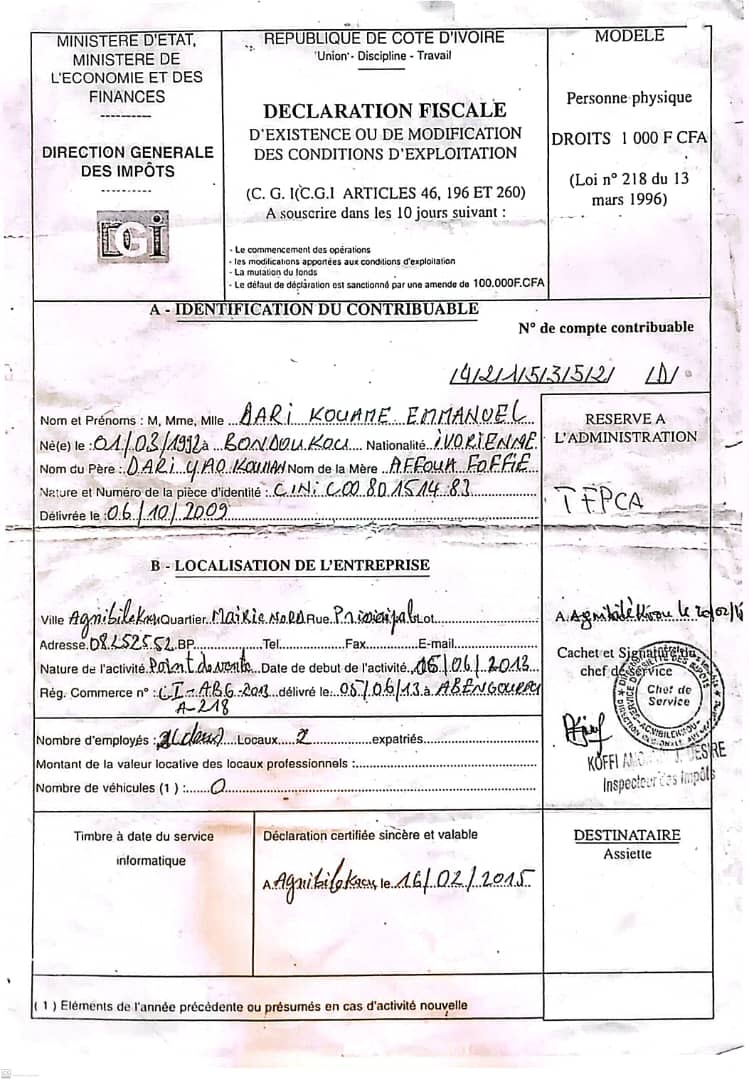 MINISTERE D'ETAT,
MINISTERE DE
L'ECONOMIE ET DES
FINANCES
DIRECTION GENERALE
DES IMPÔTS
DGI
REPUBLIQUE DE COTE D'IVOIRE
Union - Discipline - Travail
DECLARATION FISCALE
D'EXISTENCE OU DE MODIFICATION
DES CONDITIONS D'EXPLOITATION
(C. G. I(C.G.I ARTICLES 46, 196 ET 260)
A souscrire dans les 10 jours suivant :
- Le commencement des opérations
- les modifications apportées aux conditions d'exploitation
- La mutation du fonds
- Le défaut de déclaration est sanctionné par une amende de 100.000F.CFA
MODELE
Personne physique
DROITS 1 000 F CFA
(Loi n° 218 du 13
mars 1996)
A - IDENTIFICATION DU CONTRIBUABLE
N° de compte contribuable
/4/2/1/5/3/5/2/ /D/
Nom et Prénoms : M, Mme, Mlle DARI KOUAME EMMANUEL
Né(e) le : 01/03/1992 à BONDOUKOU Nationalité IVORIENNE
Nom du Père : DARI YAO KOUMAN Nom de la Mère AFFOUA FOFFIE
Nature et Numéro de la pièce d'identité : C.INI C00 80 1514 83
Délivrée le : 06/10/2009
RESERVE A
L'ADMINISTRATION
TFPCA
B - LOCALISATION DE L'ENTREPRISE
Ville Agnibilekrou Quartier Mairie NORD Rue Principal Lot
Adresse 08252552 BP Tel Fax E-mail
Nature de l'activité Point de vente Date de debut de l'activité 05/06/2013
Rég. Commerce n° : CI-ABG-2013 délivré le 05/06/13 à ABENGOUROU
A-218
A Agnibilékrou le 20/02/
Cachet et Signature
chef de Service
Chef de
Service
KOFFI DESIRE
Inspecteur des Impôts
Nombre d'employés : 2(deux) Locaux 2 expatriés
Montant de la valeur locative des locaux professionnels :
Nombre de véhicules (1) : 0
Timbre à date du service
informatique
Déclaration certifiée sincère et valable
A Agnibilekrou le 16/02/2015
DESTINATAIRE
Assiette
( 1 ) Eléments de l'année précédente ou présumés en cas d'activité nouvelle